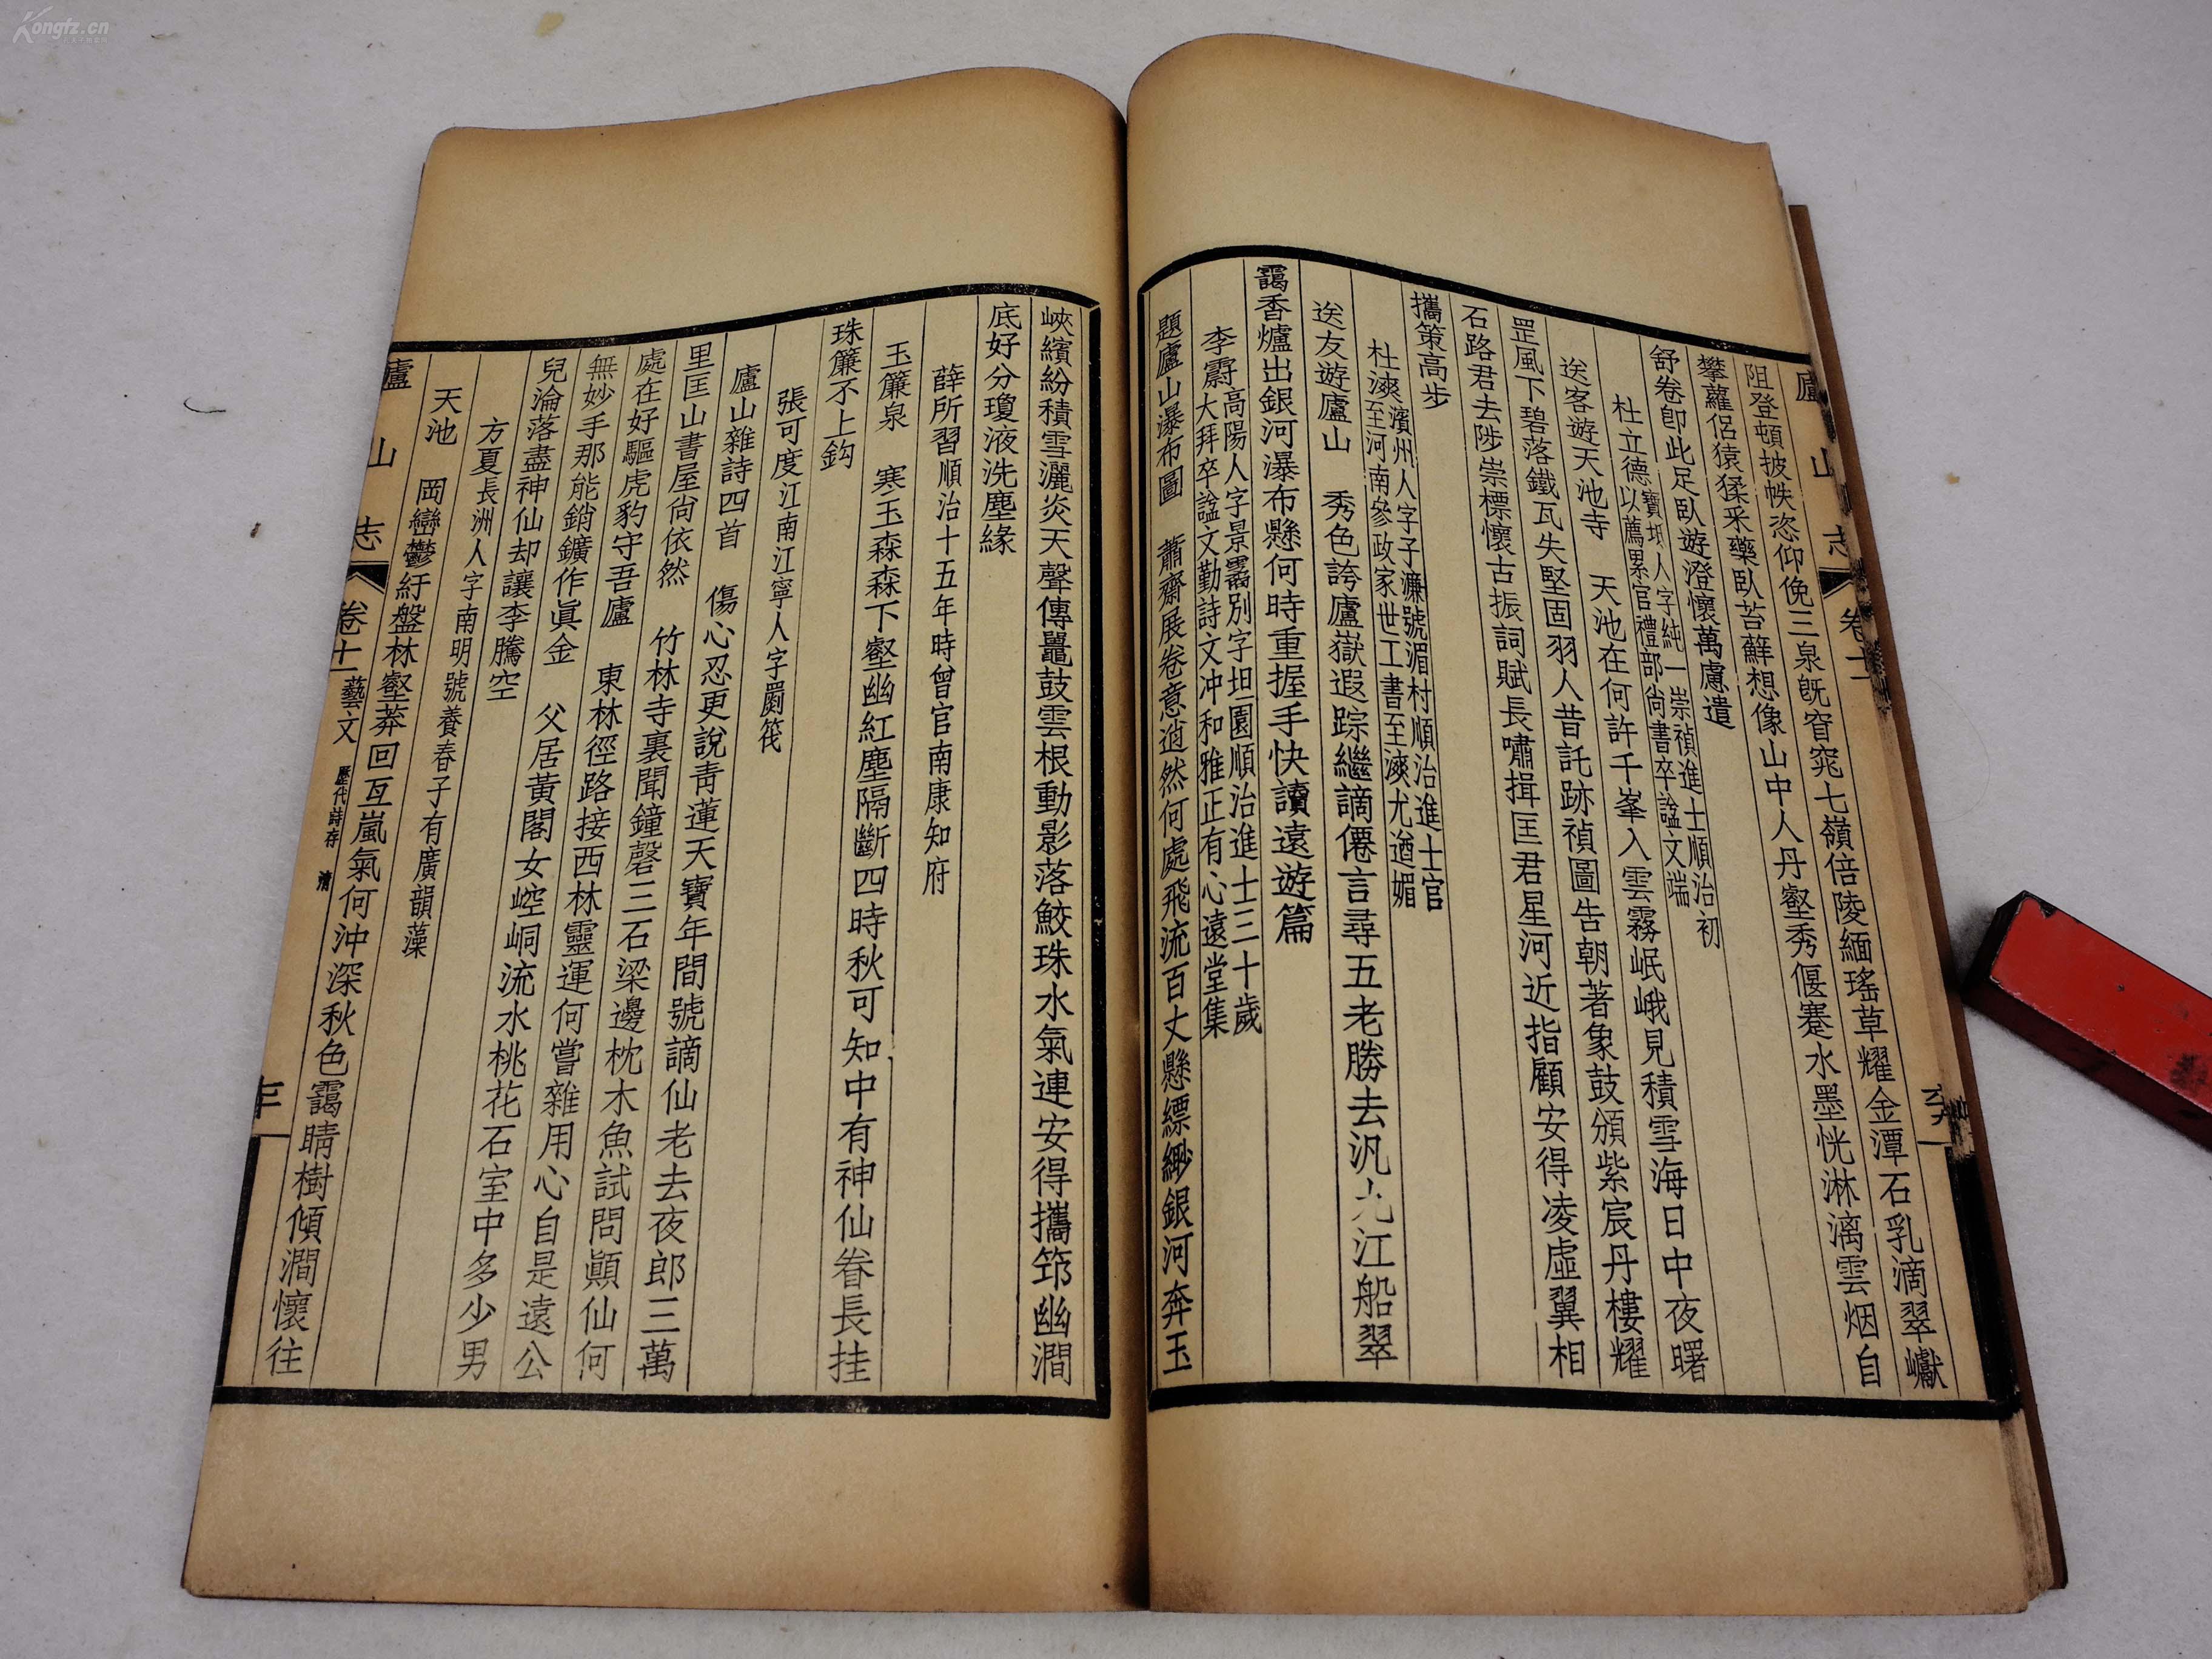 Kongfz.cn
廬山志 卷十一
阻登頓披帙恣仰俛三泉旣窅窕七嶺倍陵緬瑤草耀金潭石乳滴翠巘
攀蘿侶猿猱采藥臥苔蘚想像山中人丹壑秀偃蹇水墨恍淋漓雲烟自
舒卷卽此足臥遊澄懷萬慮遣
杜立德寶坻人字純一崇禎進士順治初
以薦累官禮部尙書卒諡文端
送客遊天池寺 天池在何許千峯入雲霧岷峨見積雪海日中夜曙
罡風下碧落鐵瓦失堅固羽人昔託跡禎圖告朝著象鼓頒紫宸丹樓耀
石路君去陟崇標懷古振詞賦長嘯揖匡君星河近指顧安得凌虛翼相
攜策高步
杜漺濱州人字子濂號湄村順治進士官
至河南參政家世工書至漺尤遒媚
送友遊廬山 秀色誇廬嶽遐踪繼謫僊言尋五老勝去汎九江船翠
靄香爐出銀河瀑布懸何時重握手快讀遠遊篇
李霨高陽人字景霱別字坦園順治進士三十歲
大拜卒諡文勤詩文冲和雅正有心遠堂集
題廬山瀑布圖 蕭齋展卷意逌然何處飛流百丈懸縹緲銀河奔玉
峽繽紛積雪灑炎天聲傳鼉鼓雲根動影落鮫珠水氣連安得攜筇幽澗
底好分瓊液洗塵緣
薛所習順治十五年時曾官南康知府
玉簾泉 寒玉森森下壑幽紅塵隔斷四時秋可知中有神仙眷長挂
珠簾不上鈎
張可度江南江寧人字罽筏
廬山雜詩四首 傷心忍更說靑蓮天寶年間號謫仙老去夜郎三萬
里匡山書屋尙依然 竹林寺裏聞鐘磬三石梁邊枕木魚試問顚仙何
處在好驅虎豹守吾廬 東林徑路接西林靈運何嘗雜用心自是遠公
無妙手那能銷鑛作眞金 父居黃閣女崆峒流水桃花石室中多少男
兒淪落盡神仙却讓李騰空
方夏長洲人字南明號養春子有廣韻藻
天池 岡巒鬱紆盤林壑莽回互嵐氣何沖深秋色靄晴樹傾澗懷往
廬山志 卷十一 藝文 歷代詩存 清